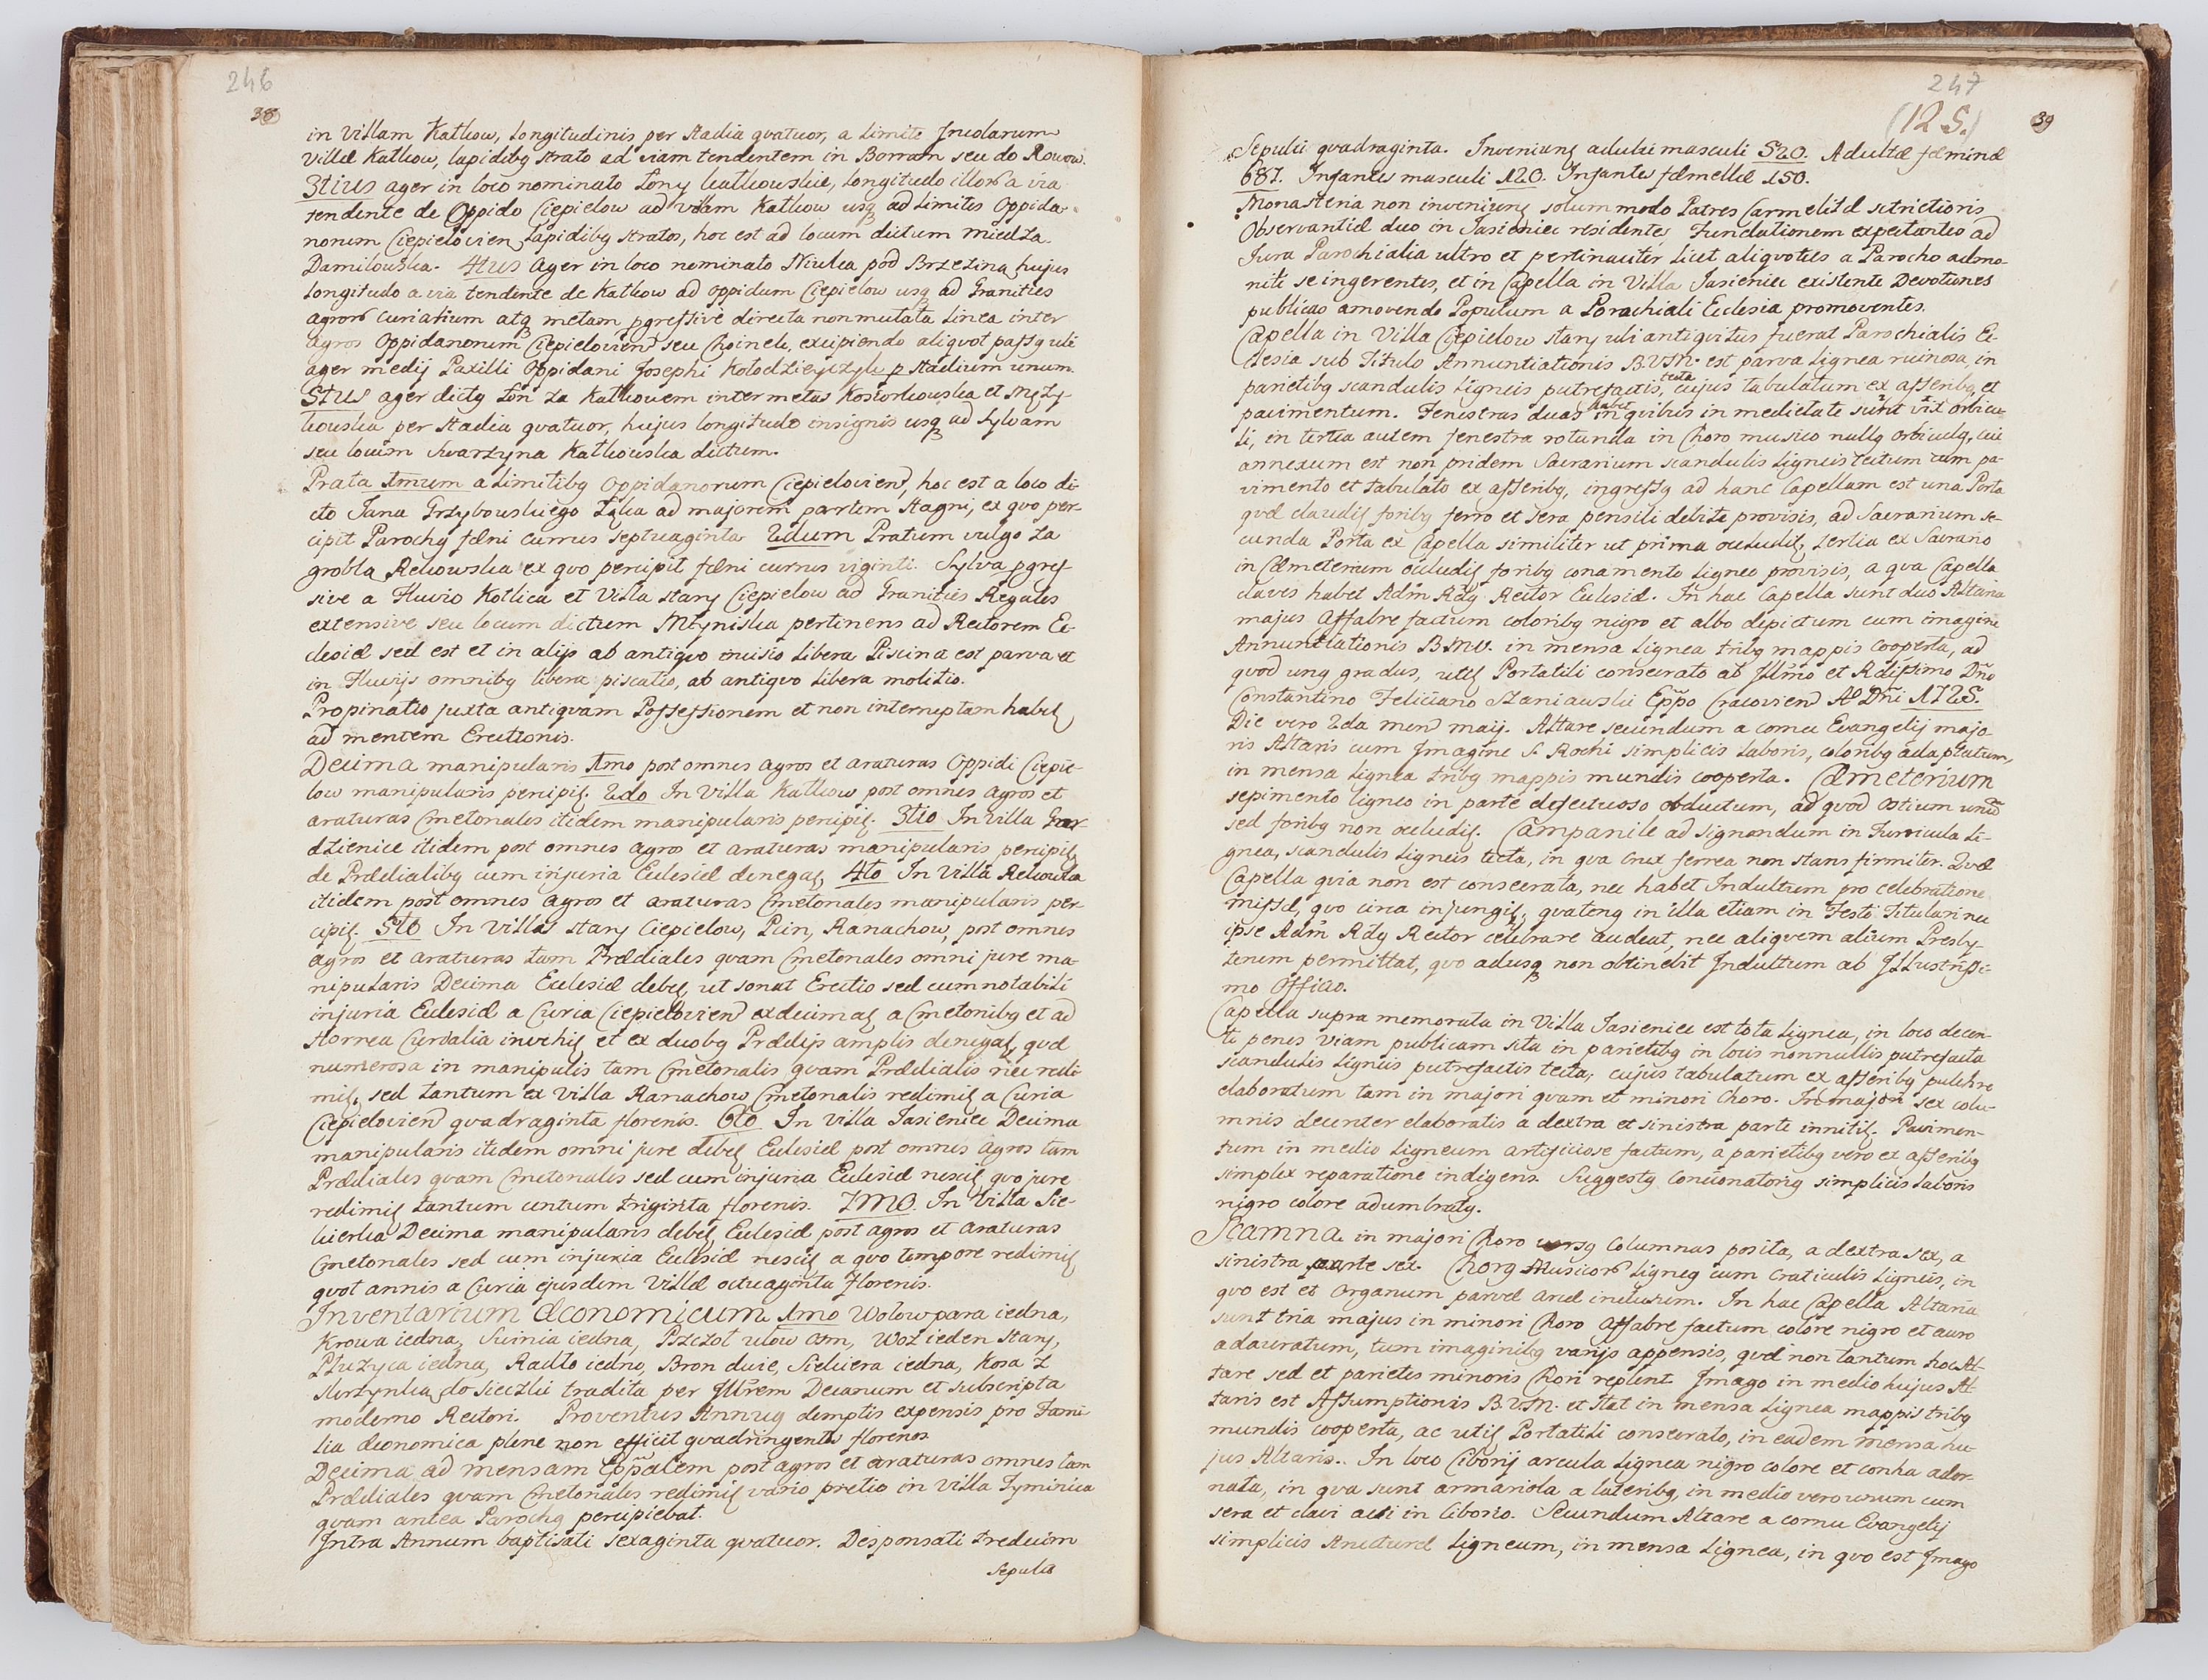 246
38
in Villam Kałkow, longitudinis per stadia qvatuor, a limite Incolarum
Villæ Kałkow, lapidibq strato ad viam tendentem in Borram seu do Rowow.
3tius ager in loco nominato Łony kałkowskie, longitudo illor a via
tendente de Oppido Ciepielow ad villam Kałkow usq ad limites Oppida-
norum Ciepielovien lapidibq stratos, hoc est ad locum dictum miedza
Damilowska. 4tus Ager in loco nominato Niwka pod Brzezina hujus
longitudo a via tendente de Kałkow ad oppidum Ciepielow usq ad Granities
agror curialium atq metam pgressive directa non mutata linea inter
agros Oppidanorum Ciepielovien seu Choinek, excipiendo aliqvot passq uli
ager medij Paxilli Oppidani Josephi Kołodzieyczyk p stadium unum.
5tus ager dictq Łon za Kałkowem inter metas Kosiorkowska et Męży-
kowska per stadia qvatuor, hujus longitudo insignis usq ad sylvam
seu locum Swarzyna Kałkowska dictum.
Prata 1mum a limitibq Oppidanorum Ciepielovien, hoc est a loco di-
cto Jana Grzybowskiego Łąka ad majorem partem stagni, ex qvo per-
cipit Parochq fæni currus septuaginta 2dum Pratum vulgo za
groblą Rekowska ex qvo percipit fæni currus viginti. Sylva pgres
sive a Fluvio Kotlica et Villa stary Ciepielow ad Granities Regales
extensive seu locum dictum Młyniska pertinens ad Rectorem Ec-
clesiæ sed est et in alijs ab antiqvo incisio libera Piscina est parva et
in Fluvijs omnibq libera piscatio, ab antiqvo libera molitio.
Propinatio juxta antiqvam Possessionem et non interruptam habet
ad mentem Erectionis.
Decima manipularis 1mo post omnes agros et araturas Oppidi Ciepie-
low manipularis percipit. 2do In Villa Kałkow post omnes agros et
araturas Cmetonales itidem manipularis percipit. 3tio In Villa Gar-
dzienice itidem post omnes agros et araturas manipularis percipit
de Prædialibq cum injuria Ecclesiæ denegat, 4to In Villa Rekowka
itidem post omnes agros et araturas Cmetonales manipularis per-
cipit. 5to In Villas stary Ciepielow, Pcin, Ranachow, post omnes
agros et araturas tam Prædiales qvam Cmetonales omni jure ma-
nipularis Decima Ecclesiæ debet, ut sonat Erectio sed cum notabili
injuria Ecclesiæ a Curia Ciepielovien exdecimat a Cmetonibq et ad
Horrea Curialia invehit et ex duobq Prædijs amplis denegat, qvæ
numerosa in manipulis tam Cmetonalis qvam Prædialis nec redi-
mit, sed tantum ex Villa Ranachow Cmetonalis redimit a Curia
Ciepielovien qvadraginta florenis. 6to In Villa Jasieniec Decima
manipularis itidem omni jure debet Ecclesiæ post omnes agros tam
Prædiales qvam Cmetonales sed cum injuria Ecclesiæ nescit qvo jure
redimit tantum centum triginta florenis. 7mo. In Villa Sie-
kierka Decima manipularis debet Ecclesiæ post agros et araturas
Cmetonales sed cum injuria Ecclesiæ nescit a qvo tempore redimit
qvot annis a Curia ejusdem Villæ octuaginta Florenis.
Inventarium Œconomicum 1mo Wołow para iedna,
Krowa iedna, Swinia iedna, Pszczoł ulow om, Woz ieden stary,
Płużyca iedna, Radło iedno, Bron dwie, Siekiera iedna, Kosa z
skrzynką do sieczki tradita per Illrem Decanum et subscripta
moderno Rectori. Proventus Annuq demptis expensis pro Fami
lia œconomica plene non efficit qvadringentos florenos
Decima ad mensam Eppalem post agros et araturas omnes tam
Prædiales qvam Cmetonales redimit vario pretio in Villa Tyminica
qvam antea Parochq percipiebat.
Intra Annum baptisati sexaginta qvatuor. Desponsati tredecim
Sepulti
247
(12 S.)
39
Sepulti qvadraginta. Inveniunt adulti masculi 520. Adultæ fæminæ
687. Infantes masculi 120. Infantes fæmellæ 150.
Monasteria non inveniunt solummodo Patres Carmelitæ strictioris
Observantiæ duo in Jasieniec residentes Fundationem expectantes ad
Jura Parochialia ultro et pertinaciter licet aliqvoties a Parocho admo-
niti se ingerentes, et in Capella in Villa Jasieniec existente Devotiones
publicas amovendo Populum a Parochiali Ecclesia promoventes.
Capella in Villa Ciepielow stary uli antiqvitus fuerat Parochialis Ec-
clesia sub Titulo Annuntiationis B.V.M. est parva lignea ruinosa, in
parietibq scandulis ligneis putrefactis, tecta cujus tabulatum ex asseribq, et
pavimentum. Fenestras duas habet in qvibus in medietate sunt vix orbicu-
li, in tertia autem fenestra rotunda in Choro musico nullq orbiculq, cui
annexum est non pridem Sacrarium scandulis ligneis tectum cum pa-
vimento et tabulato ex asseribq, ingressq ad hanc Capellam est una Porta
qvæ claudit foribq ferro et sera pensili debite provisis, ad Sacrarium se-
cunda Porta ex Capella similiter ut prima occludit, tertia ex Sacrario
in Cæmeterium occludit foribq conamento ligneo provisis, a qva Capella
claves habet Adm Rdq Rector Ecclesiæ. In hac Capella sunt duo Altaria
majus Affabre factum coloribq nigro et albo depictum cum imagine
Annuntiationis B.M.V. in mensa lignea tribq mappis cooperta, ad
qvod unq gradus, utit Portatili consecrato ab Illmo et Rdissimo Dño
Constantino Feliciano Szaniawski Eppo Cracovien Aº Dñi 1725.
Die vero 2da men maij. Altare secundum a cornu Evangelij majo
ris Altaris cum Imagine S. Rochi simplicis laboris, coloribq adaptatum,
in mensa lignea tribq mappis mundis cooperta. Cæmeterium
sepimento ligneo in parte defectuoso obductum, ad qvod Ostium unum
sed foribq non occludit. Campanile ad signandum in Turricula li-
gnea, scandulis ligneis tecta, in qva Crux ferrea non stans firmiter. Qvæ
Capella qvia non est consecrata, nec habet Indultum pro celebratione
missæ, qvo circa injungit, qvatenq in illa etiam in Festo Titulari nec
ipse Adm Rdq Rector celebrare audeat, nec aliqvem alium Presby-
terum permittat, qvo adusq non obtinebit Indultum ab Illustrissi-
mo Officio.
Capella supra memorata in Villa Jasieniec est tota lignea, in loco decen-
ti penes viam publicam sita in parietibq in locis nonnullis putrefacta
scandulis ligneis putrefactis tecta, cujus tabulatum ex asseribq pulchre
elaboratum tam in majori qvam et minori Choro. In majori sex colu-
mnis decenter elaboratis a dextra et sinistra parte innitit. Pavimen-
tum in medio ligneum artificiose factum, a parietibq vero ex asseribq
simplex reparatione indigens. Suggestq Concionatorq simplicis laboris
nigro colore adumbratq.
Scamna in majori Choro versq Columnas posita, a dextra sex, a
sinistra parte sex. Chorq Musicor ligneq cum Craticulis ligneis, in
qvo est et Organum parvæ arcæ inclusum. In hac Capella Altaria
sunt tria majus in minori Choro Affabre factum colore nigro et auro
adauratum, tum imaginibq varijs appensis, qvæ non tantum hoc Al-
tare sed et parietes minoris Chori replent. Imago in medio hujus Al-
taris est Assumptionis B.V.M. et stat in mensa lignea mappis tribq
mundis cooperta, ac utit Portatili consecrato, in eadem mensa hu-
jus Altaris. In loco Ciborij arcula lignea nigro colore et concha ador-
nata, in qva sunt armariola a lateribq, in medio vero unum cum
sera et clavi acsi in Ciborio. Secundum Altare a cornu Evangelij
simplicis structuræ ligneum, in mensa lignea, in qvo est Imago